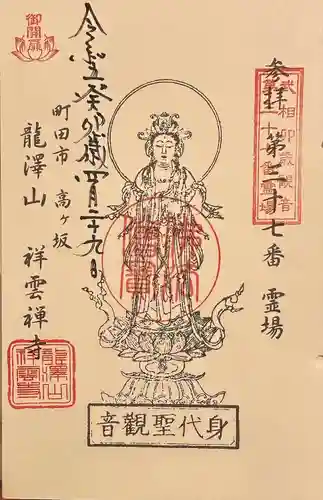 武相卯歳観音
参拝 第二十七番 霊場
御開扉
令和五癸卯歳四月二十九日
町田市 高ヶ坂
龍澤山 祥雲禅寺
龍澤山
祥雲寺
身代聖観音